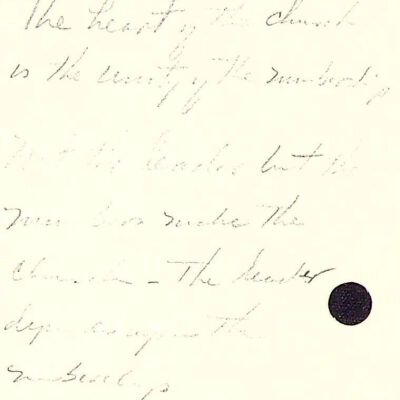 The heart of the church
is the unity of the membership
Not the leader but the
members make the
church - The leader
depends upon the
membership